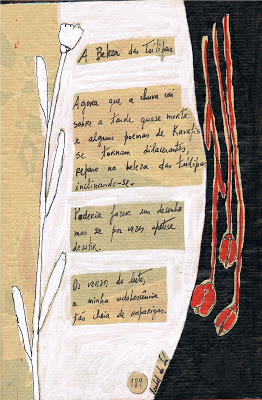 A Beleza das Tulipas
Agora que a chuva cai
sobre a tarde quase morta
e alguns poemas de Kavafis
se tornam dilacerantes,
reparo na beleza das tulipas
inclinando-se.
Poderia fazer um desenho
mas se por vezes apetece
desistir.
Os versos do luto,
a minha adolescência
tão cheia de raparigas.
189